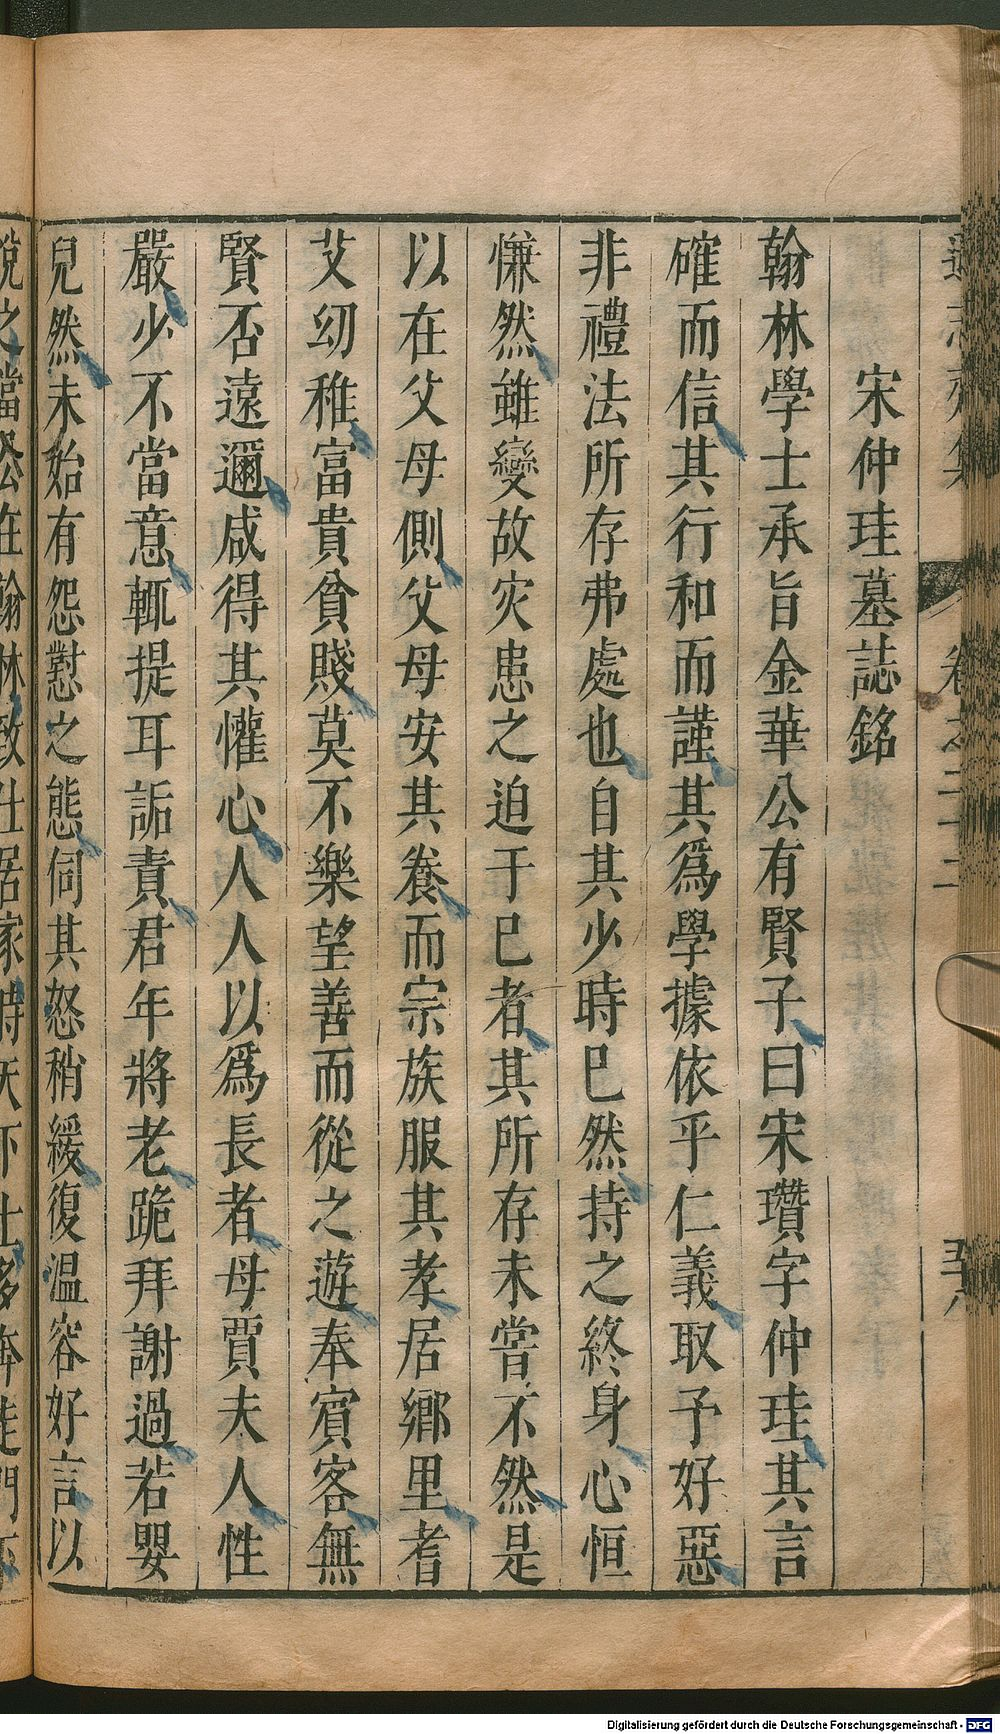 宋仲珪墓誌銘
翰林學士承旨金華公有賢子曰宋瓚字仲珪其言
確而信其行和而謹其爲學據依乎仁義取予好惡
非禮法所存弗處也自其少時已然持之終身心恒
慊然雖變故灾患之迫于已者其所存未嘗不然是
以在父母側父母安其養而宗族服其孝居鄉里耆
艾幼稚富貴貧賤莫不樂望善而從之遊奉賓客無
賢否遠邇咸得其懽心人人以爲長者母賈夫人性
嚴少不當意輒提耳詬責君年將老跪拜謝過若嬰
兒然未始有怨懟之態伺其怒稍緩復溫容好言以
悅之當公在翰林致仕居家時天下士多奔走門下
卷之二十二
Digitalisierung gefördert durch die Deutsche Forschungsgemeinschaft - DFG